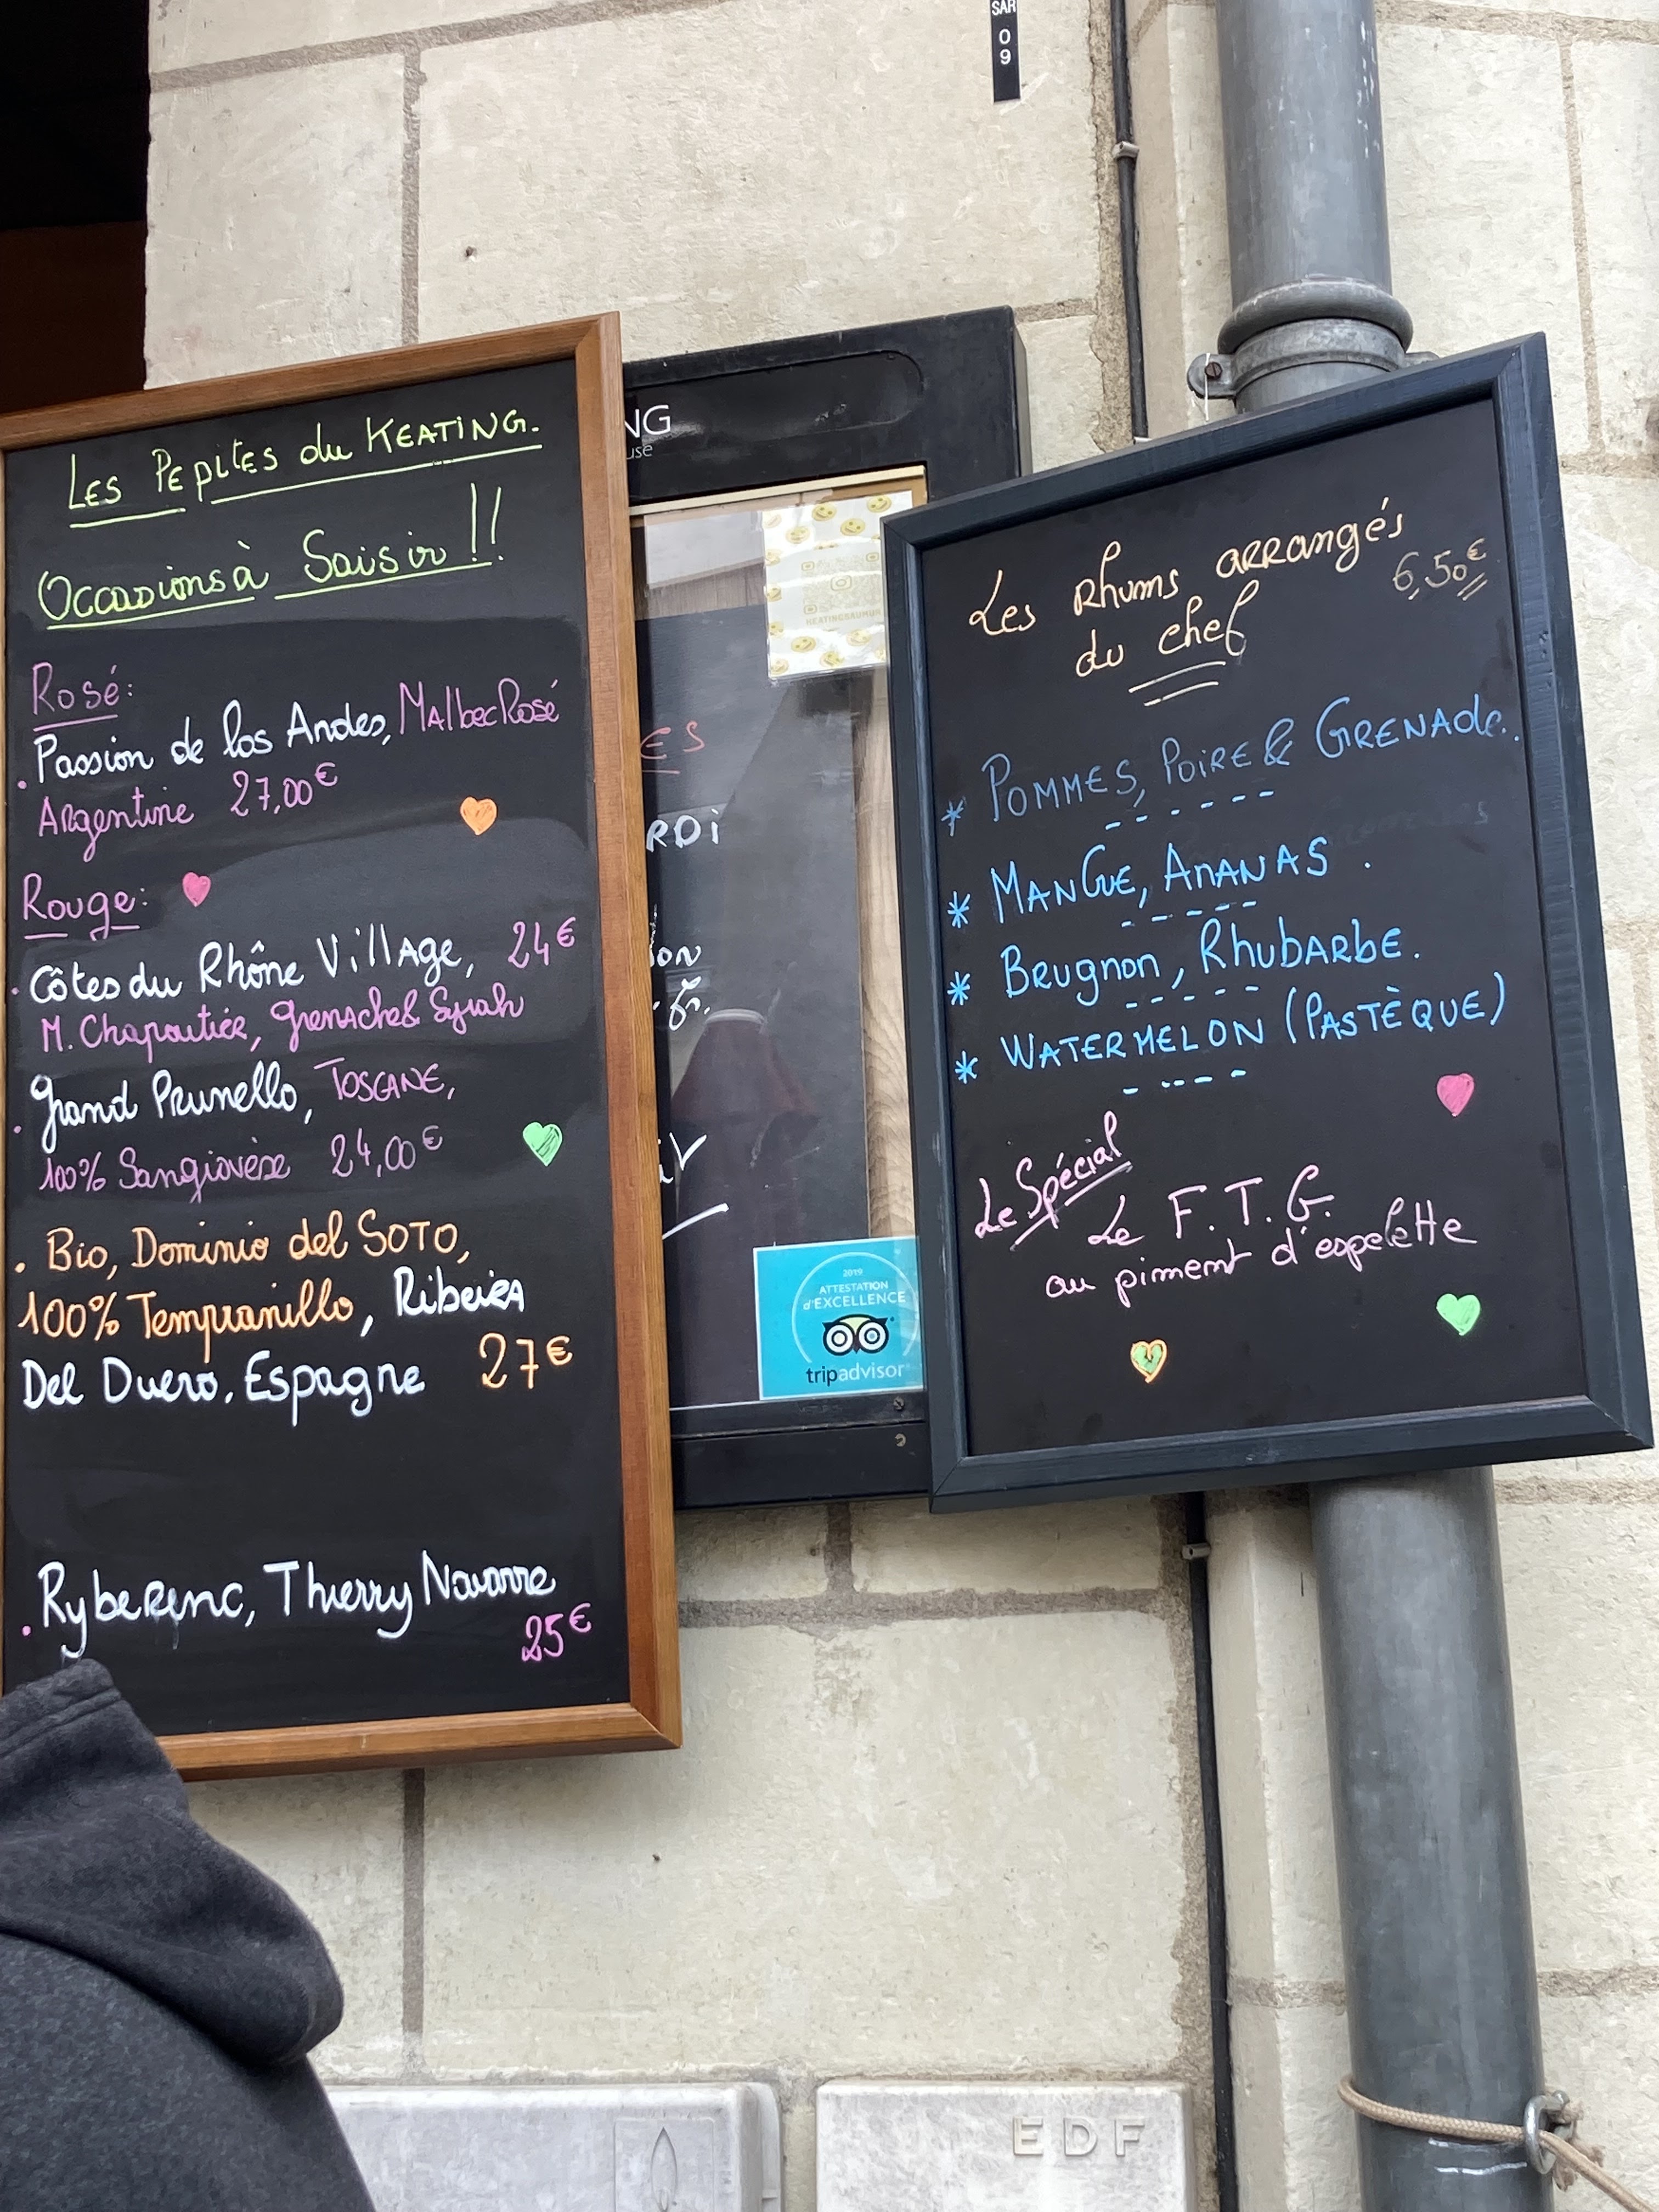 SAR
0
9
LES PEPITES du KEATING.
Occasions à Saisir !!
Rosé:
. Passion de los Andes, Malbec Rosé
Argentine 27,00€
Rouge:
. Côtes du Rhône Village, 24€
M. Chapoutier, Grenache & Syrah
. Grand Prunello, TOSCANE,
100% Sangiovèse 24,00€
. Bio, Dominio del SOTO,
100% Tempranillo, Ribeira
Del Duero, Espagne 27€
. Ryberenc, Thierry Navarre
25€
NG
use
KEATINGSAUMUR
ES
RDi
on
2019
ATTESTATION
d'EXCELLENCE
tripadvisor
Les Rhums arrangés
6,50€
du chef
* POMMES, POIRE & GRENADE..
* MANGUE, ANANAS .
* Brugnon, RHUBARBE.
* WATERMELON (PASTÈQUE)
Le Spécial
Le F.T.G.
au piment d'espelette
EDF